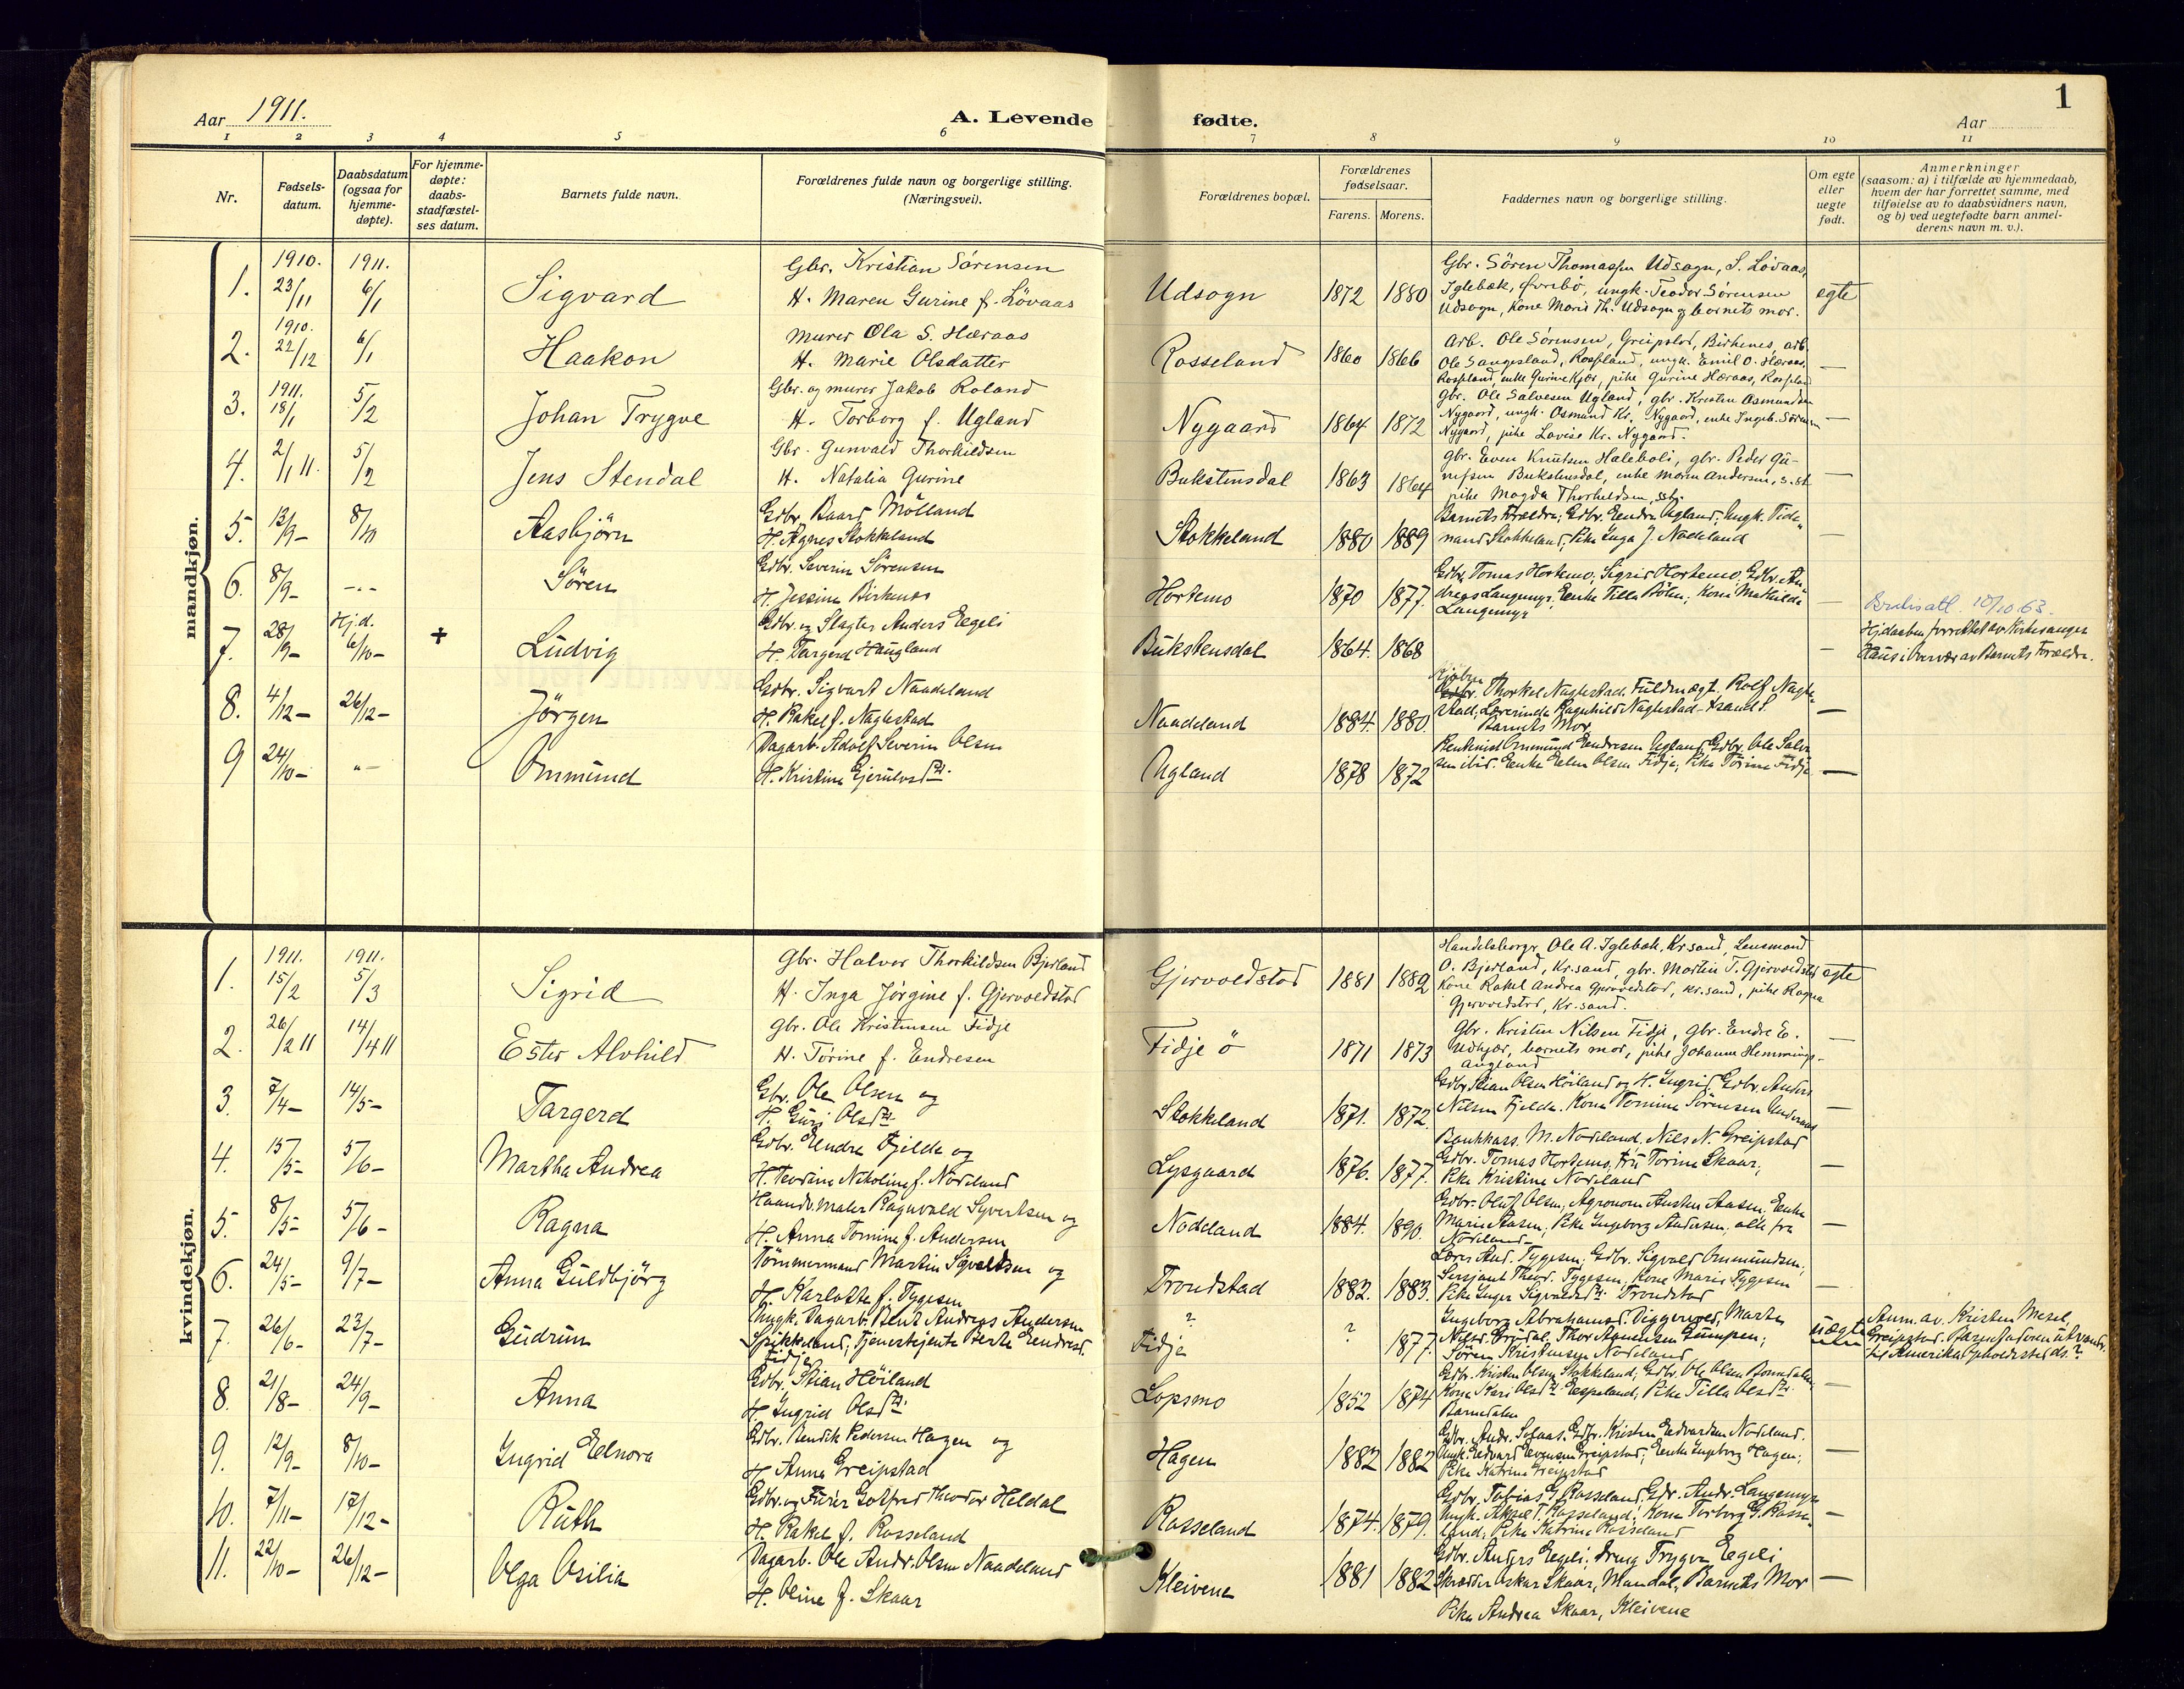 1
Aar 1911.
A. Levende fødte.
Aar
1 2 3 4 5 6 7 8 9 10 11
Nr.
Fødsels-
datum.
Daabsdatum
(ogsaa for
hjemme-
døpte).
For hjemme-
døpte:
daabs-
stadfæstel-
ses datum.
Barnets fulde navn.
Forældrenes fulde navn og borgerlige stilling.
(Næringsvei).
Forældrenes bopæl.
Forældrenes
fødselsaar.
Farens. Morens.
Faddernes navn og borgerlige stilling.
Om egte
eller
uegte
født.
Anmerkninger
(saasom: a) i tilfælde av hjemmedaab,
hvem der har forrettet samme, med
tilføielse av to daabsvidners navn,
og b) ved uegtefødte barn anmel-
derens navn m. v.).
mandkjøn.
1. 1910. 23/11 1911. 6/1 Sigvard
Gbr. Kristian Sørensen
H. Maren Gurine f. Lövaas
Udsogn 1872 1880
Gbr. Sören Thomassen Udsogn, S. Lövaas,
Iglebæk, Øvrebö, ungk. Teodor Sørensen
Udsogn, Kone Marie Th. Udsogn og barnets mor.
egte
2. 1910. 22/12 6/1 Haakon
Murer Ola S. Hæraas
H. Marie Olsdatter
Rosseland 1860 1866
Arb. Ole Sørensen, Greipstad, Birkenes, arb.
Ole Saugesland, Rossland, ungk. Emil O. Hæraas,
Rossland, enke Gurine Kjær, pike Gurine Hæraas, Rossland
—
3. 1911. 18/1 5/2 Johan Trygve
Gbr. og murer Jakob Roland
H. Torborg f. Ugland
Nygaard 1864 1872
Gbr. Ole Salvesen Ugland, gbr. Kristen Osmundsen
Nygaard, ungk. Osmund Kr. Nygaard, enke Ingeb. Sörensen
Nygaard, pike Lovise Kr. Nygaard.
—
4. 2/1 11. 5/2 Jens Stendal
Gbr. Gunvald Thorkildsen
H. Natalia Gurine
Bukstensdal 1863 1864
Gbr. Even Knutsen Haleboli, gbr. Peder Gu-
Bukstensdal, enke Maren Andersen, s. st.
pike Magda Thorkeldsen, sst.
—
5. 13/9- 8/10 Aasbjörn
Gdbr. Baard Mölland
H. Agnes Stokkeland
Stokkeland 1880 1889
Barnets Forældre; Gdbr. Eendre Ugland; Ungk. Fide-
nand Stokkeland; Pike Inga J. Nodeland
—
6. 8/9- -..- Sören
Gdbr. Severin Sörensen
H. Jessine Birkenes
Hortemo 1870 1877.
Gdbr. Tomas Hortemo; Sigrid Hortemo; Gdbr. An-
dreas Langemyr; Eenke Tilla Böhn; Kone Mathilde
Langemyr
—
7. 28/9- Hjd. 6/10- + Ludvig
Gdbr. og Slagter Anders Eegeli
H. Targerd Haugland
Bukstensdal 1864. 1868
-
10/10 63.
Hjdaaben forrettet av Kirkesanger
Haus i Overvær av Barnets Forældre.
8. 4/12- 26/12- Jörgen
Gdbr. Sigvart Naadeland
H. Rakel f. Naglestad
Naadeland 1884. 1880.
Thorkel Naglestad. Fuldmægt. Rolf Nagle-
stad; Lærerinde Ragnhild Naglestad - Krsand S.
Barnets Mor
—
9 24/10- "- Ommund
Dagarb. Adolf Severin Olsen
H. Kristine Gjerulvsdtr.
Ugland 1878 1872
Ommund Eendresen Ugland; Gdbr. Ole Salve-
sen ibid. Eenke Elen Olsen Fidje; Pike Torine Fidje
—
kvindekjøn.
1. 1911. 15/2 1911. 5/3 Sigrid
Gbr. Halvor Thorkildsen Bjerland
H. Inga Jørgine f. Gjervoldstad
Gjervoldstad 1881 1882
Handelsborger Ole A. Iglebæk, Kr.sand, Lensmand
O. Bjerland, Kr.sand, gbr. Martin T. Gjervoldstad
Kone Rakel Andrea Gjervoldstad, kr.sand, pike Ragna
Gjervoldstad, Kr.sand.
egte
2. 26/2 11 14/4 11 Ester Alvhild
Gbr. Ole Kristensen Fidje
H. Tørine f. Endresen
Fidje ö 1871 1873
Gbr. Kristen Nilsen Fidje, gbr. Endre E.
Udkjær, barnets mor, pike Johanne Hemmings-
Augland
—
3. 7/4- 14/5- Targerd
Gbr. Ole Olsen og
H. Guri Olsdtr.
Stokkeland 1871. 1872.
Gdbr. Stian Olsen Höiland og H. Ingrid. Gdbr. Anders
Nilsen Fjelde. Kone Tomine Sörensen
—
4. 15/5- 5/6- Martha Andrea
Gdbr. Endre Fjelde og
H. Teodine Nikoline f. Nodeland
Lysgaard 1876. 1877.
Bankkass. M. Nodeland. Nils N. Greipstad
Gdbr. Tomas Hortemo, Fru Torine Skaar;
Pike Kristine Nodeland
—
5. 8/5- 5/6- Ragna
Haandv. maler Ragnvald Syvertsen og
H. Anna Tomine f. Andersen
Nodeland 1884. 1890.
Gdbr. Oluf Olsen, Agronom Austen Aasen, Eenke
Marie Aasen, Pike Ingeborg Andersen, alle fra
Nodeland-
—
6. 24/5- 9/7- Anna Guldbjörg
Tömmermand Martin Sigvaldsen og
H. Karlotte f. Tygesen
Trondstad 1882. 1883.
Lærer And. Tygesen; Gdbr. Sigvald Ommundsen;
Sersjant Theod. Tygesen; Kone Marie Tygesen
Pike Inger Sigvaldsdtr. Trondstad
—
7. 26/6- 23/7- Gudrun
Ungk. Dagarb. Bent Andreas Andersen
Stokkeland; Tjenestejente Berte Eendresd.
Fidje
?
Fidje ? 1877.
Ingeborg Abrahamsd. Viggenes; Marten
Nilsd. Thor Gumpen;
Sören Kristensen Nodeland
uægte
Anm. av. Kristen Mesel,
Greipstad. Barnefaderen utvandr.
til Amerika, opholdssteds. ?
8. 21/8- 24/9- Anna
Gdbr. Stian Höiland
H. Ingrid Olsdtr.
Lopsmo 1852 1874
Gdbr. Kristen Olsen Stokkeland; Gdbr. Ole Olsen
Kone Kari Olsdtr. Eespeland; Pike Tilla Olsdtr.
—
9. 12/9- 8/10- Ingrid Eelnora
Gdbr. Bendik Pedersen Hagen og
H. Anna Greipstad
Hagen 1882 1882
Gdbr. Andr. Solaas. Gdbr. Kristen Edvardsen Nodeland.
Ungk. Edvard Greipstad; Eenke Ingeborg Hagen;
Pike Katrine Greipstad
—
10. 7/11- 17/12- Ruth
Gdbr. og Furér Gotfred Theodor Heldal
H. Rakel f. Rosseland
Rosseland 1874. 1879.
Gdbr. Tobias G. Rosseland; Gdr. Andr. Langemyr
Ungk. Aksel T. Rosseland; Kone Torborg G. Rosse-
land; Pike Katrine Rosseland
—
11. 22/10- 26/12- Olga Osilia
Dagarb. Ole Andr. Olsen Naadeland
H. Oline f. Skaar
Kleivene 1881 1882
Gdbr. Anders Eegeli; Dreng Trygve Eegeli
Skrædder Oskar Skaar, Mandal, Barnets Mor
Pike Andrea Skaar, Kleivene
—